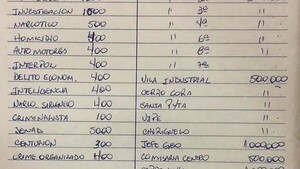 INVESTIGACION 1000 " 3ª "
NARCOTICO 500 " 4ª "
HOMICIDIO 400 " 6ª "
AUTO MOTORES 400 " 8ª "
INTERPOL 400 " 7ª "
DELITO ECONOM. 400 VILA INDUSTRIAL 500,000
INTELIGENCIA 400 CERRO CORA "
NARCO SURUNGO 400 SANTA RITA "
CRIMINALISTA 100 "
SENAD 5000 CHIRIGUELO "
CENTURION 300 JEFE GEO 1,000,000
CRIME ORGANIZADO 400 COMISARIA CENTRO 500,000